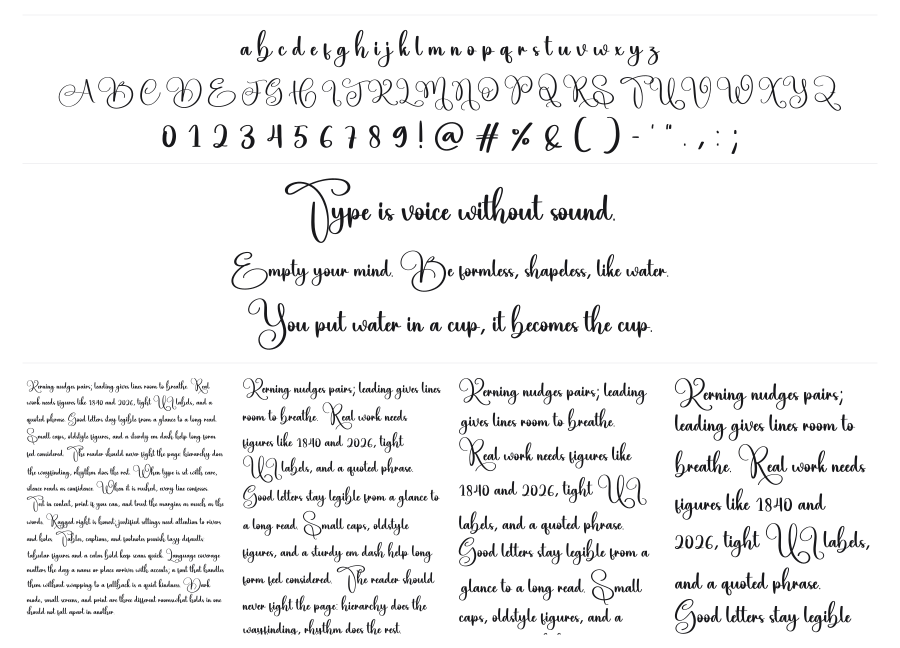 a b c d e f g h i j k l m n o p q r s t u v w x y z
A B C D E F G H I J K L M N O P Q R S T U V W X Y Z
0 1 2 3 4 5 6 7 8 9 ! @ # % & ( ) - ' " . , : ;
Type is voice without sound.
Empty your mind. Be formless, shapeless, like water.
You put water in a cup, it becomes the cup.
Kerning nudges pairs; leading gives lines room to breathe. Real
work needs figures like 1840 and 2026, tight UI labels, and a
quoted phrase. Good letters stay legible from a glance to a long read.
Small caps, oldstyle figures, and a sturdy em dash help long form
feel considered. The reader should never fight the page: hierarchy does
the wayfinding, rhythm does the rest. When type is set with care,
silence reads as confidence. When it is rushed, every line confesses.
Test in context, print if you can, and trust the margins as much as the
words. Ragged right is honest; justified settings need attention to rivers
and holes. Tables, captions, and footnotes punish lazy defaults;
tabular figures and a calm bold keep scans quick. Language coverage
matters the day a name or place arrives with accents; a font that handles
them without swapping to a fallback is a quiet kindness. Dark
mode, small screens, and print are three different rooms: what holds in one
should not fall apart in another.
Kerning nudges pairs; leading gives lines
room to breathe. Real work needs
figures like 1840 and 2026, tight
UI labels, and a quoted phrase.
Good letters stay legible from a glance to
a long read. Small caps, oldstyle
figures, and a sturdy em dash help long
form feel considered. The reader should
never fight the page: hierarchy does the
wayfinding, rhythm does the rest.
Kerning nudges pairs; leading
gives lines room to breathe.
Real work needs figures like
1840 and 2026, tight UI
labels, and a quoted phrase.
Good letters stay legible from a
glance to a long read. Small
caps, oldstyle figures, and a
Kerning nudges pairs;
leading gives lines room to
breathe. Real work needs
figures like 1840 and
2026, tight UI labels,
and a quoted phrase.
Good letters stay legible